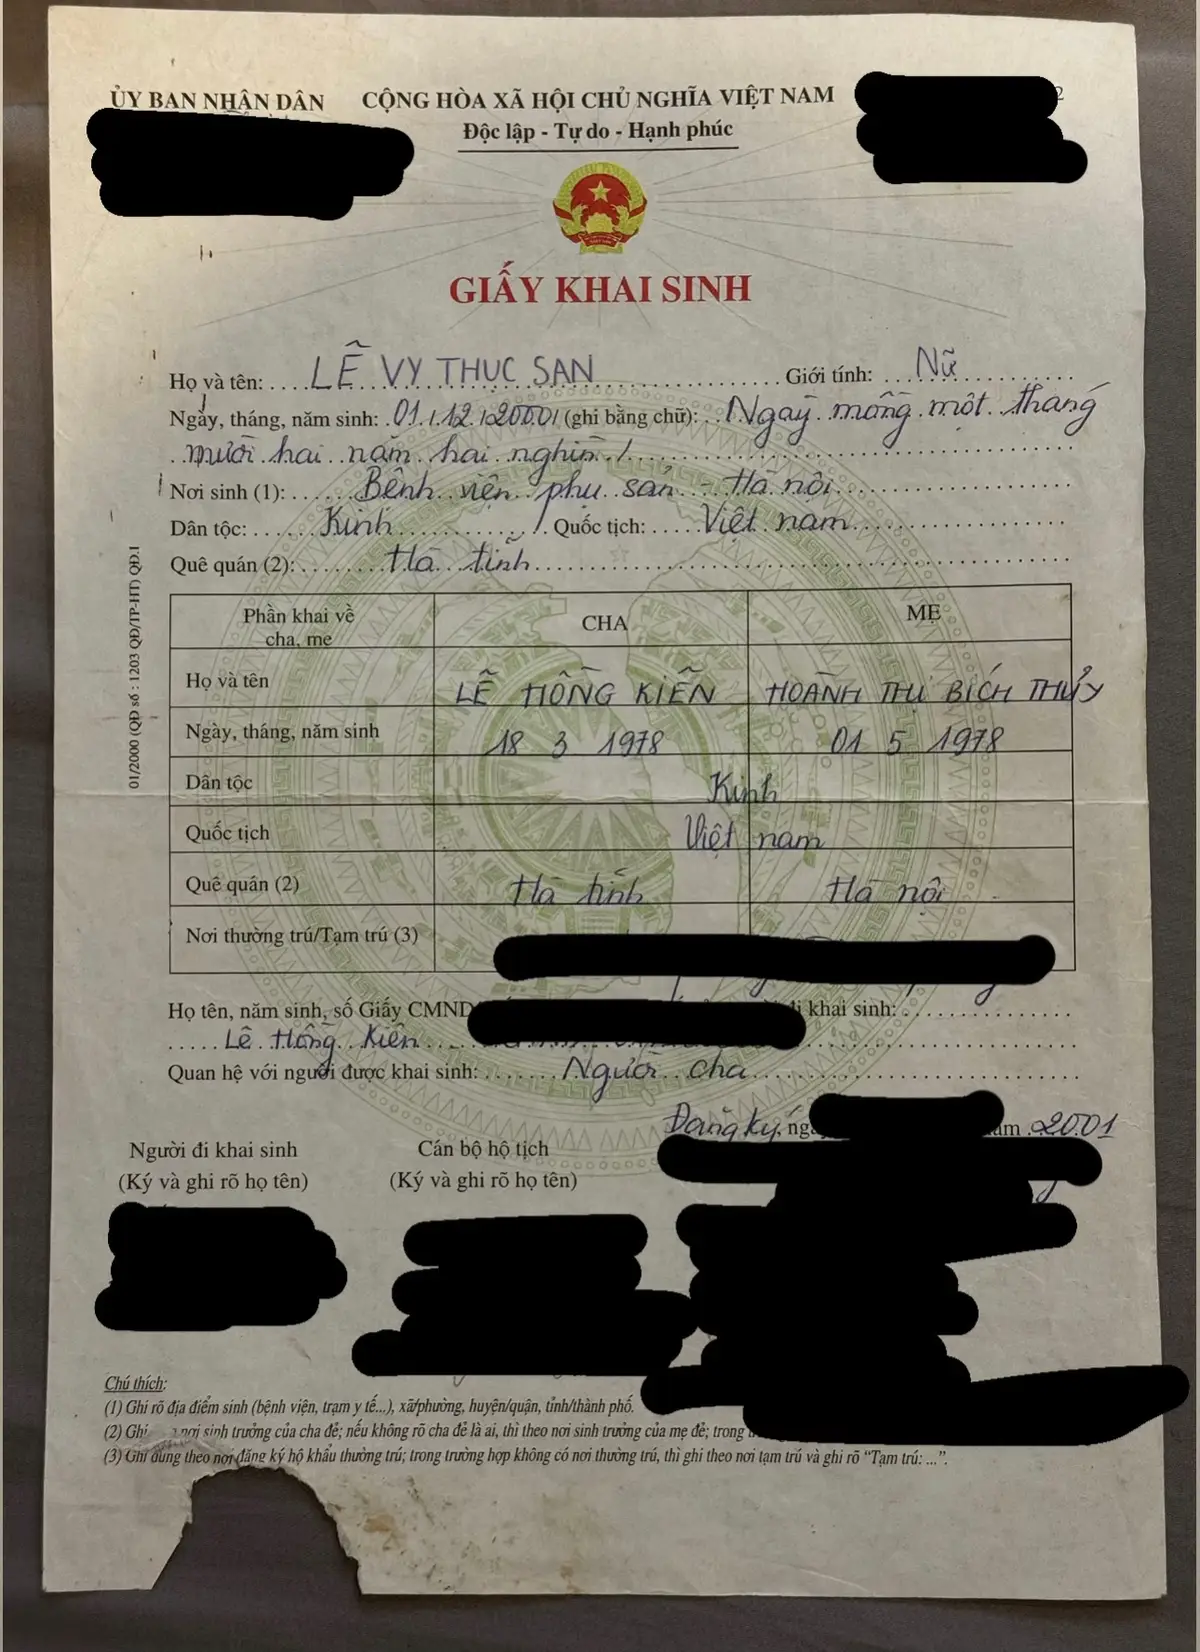 ỦY BAN NHÂN DÂN
CỘNG HÒA XÃ HỘI CHỦ NGHĨA VIỆT NAM
Độc lập - Tự do - Hạnh phúc
2
GIẤY KHAI SINH
Họ và tên: LÊ VY THỤC SAN Giới tính: Nữ
Ngày, tháng, năm sinh: 01/12/2000 (ghi bằng chữ): Ngày mồng một tháng
mười hai năm hai nghìn /
Nơi sinh (1): Bệnh viện phụ sản - Hà nội
Dân tộc: Kinh Quốc tịch: Việt nam
Quê quán (2): Hà tĩnh
Phần khai về cha, mẹ CHA MẸ
Họ và tên LÊ HỒNG KIÊN HOÀNH THỊ BÍCH THỦY
Ngày, tháng, năm sinh 18 3 1978 01 5 1978
Dân tộc Kinh
Quốc tịch Việt nam
Quê quán (2) Hà tĩnh Hà nội
Nơi thường trú/Tạm trú (3)
01/2000 (QĐ số : 1203 QĐ/TP-HT) QĐ.1
Họ tên, năm sinh, số Giấy CMND đi khai sinh:
Lê Hồng Kiên
Quan hệ với người được khai sinh: Người cha
Đăng ký, 2001
Người đi khai sinh
(Ký và ghi rõ họ tên)
Cán bộ hộ tịch
(Ký và ghi rõ họ tên)
Chú thích:
(1) Ghi rõ địa điểm sinh (bệnh viện, trạm y tế...), xã/phường, huyện/quận, tỉnh/thành phố.
(2) Ghi nơi sinh trưởng của cha đẻ; nếu không rõ cha đẻ là ai, thì theo nơi sinh trưởng của mẹ đẻ; trong
(3) Ghi đúng theo nơi đăng ký hộ khẩu thường trú; trong trường hợp không có nơi thường trú, thì ghi theo nơi tạm trú và ghi rõ “Tạm trú: ...”.